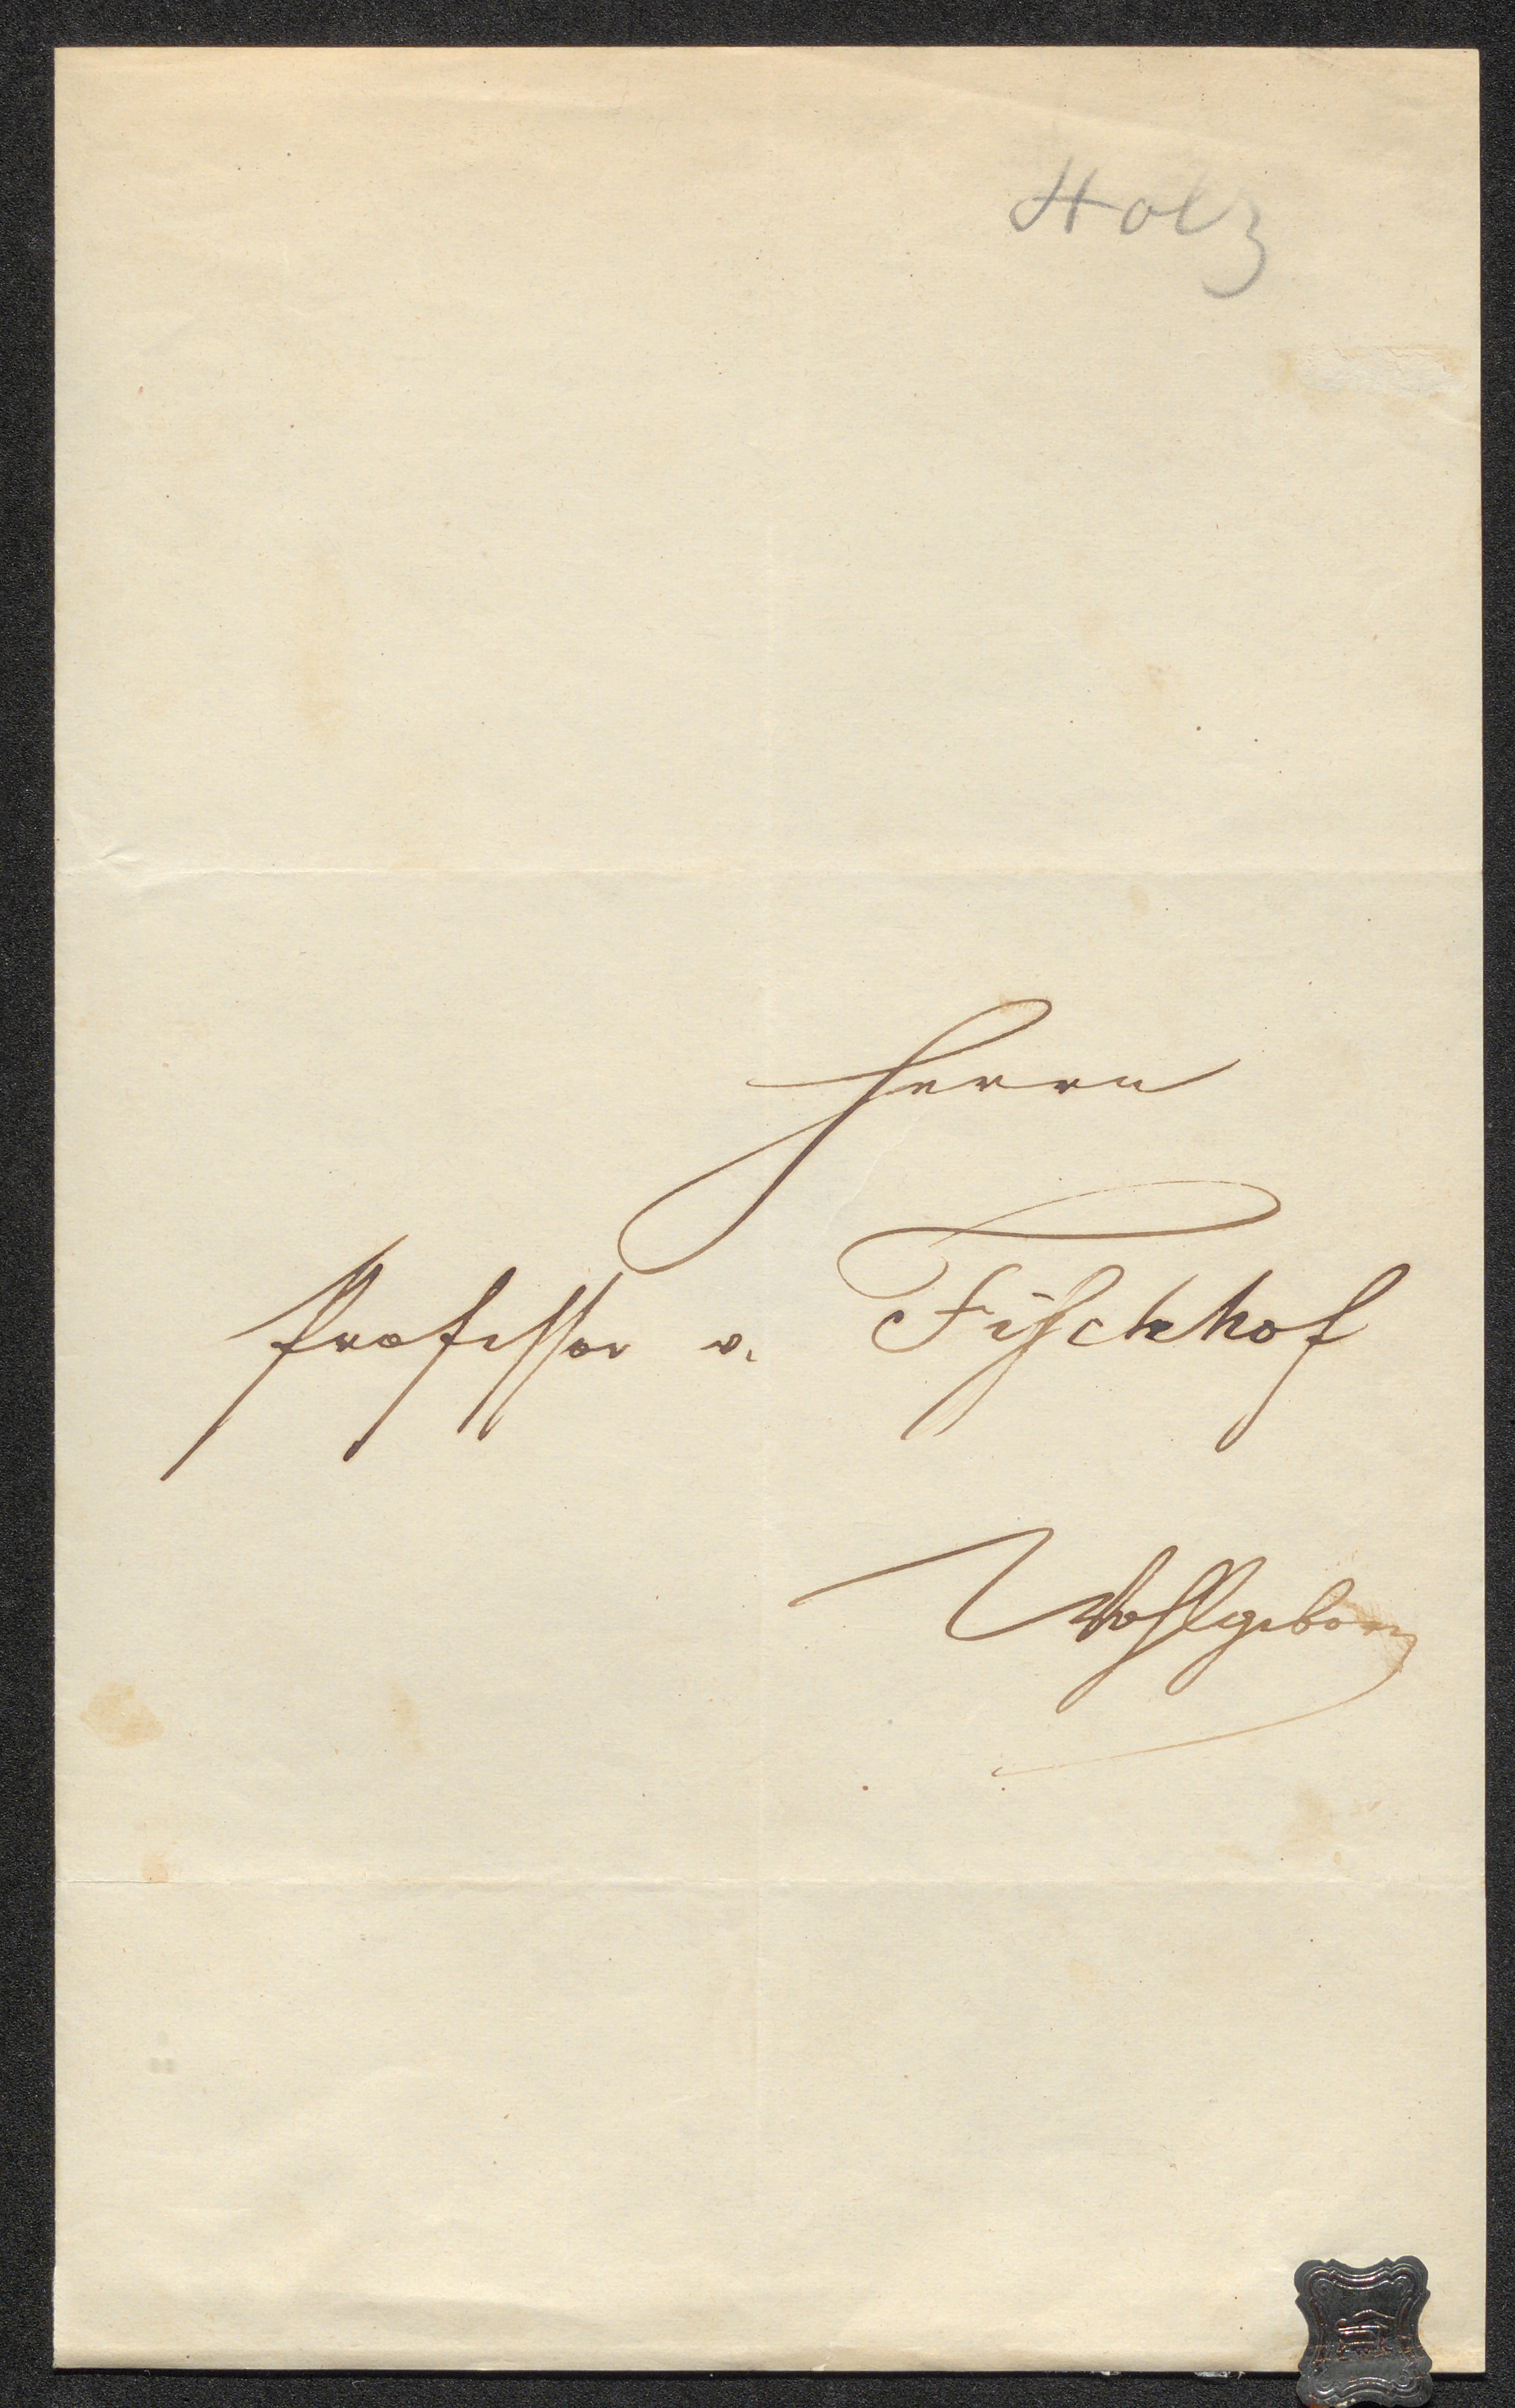 Holz
Herrn
Professor v. Fischhof
Wohlgeborn